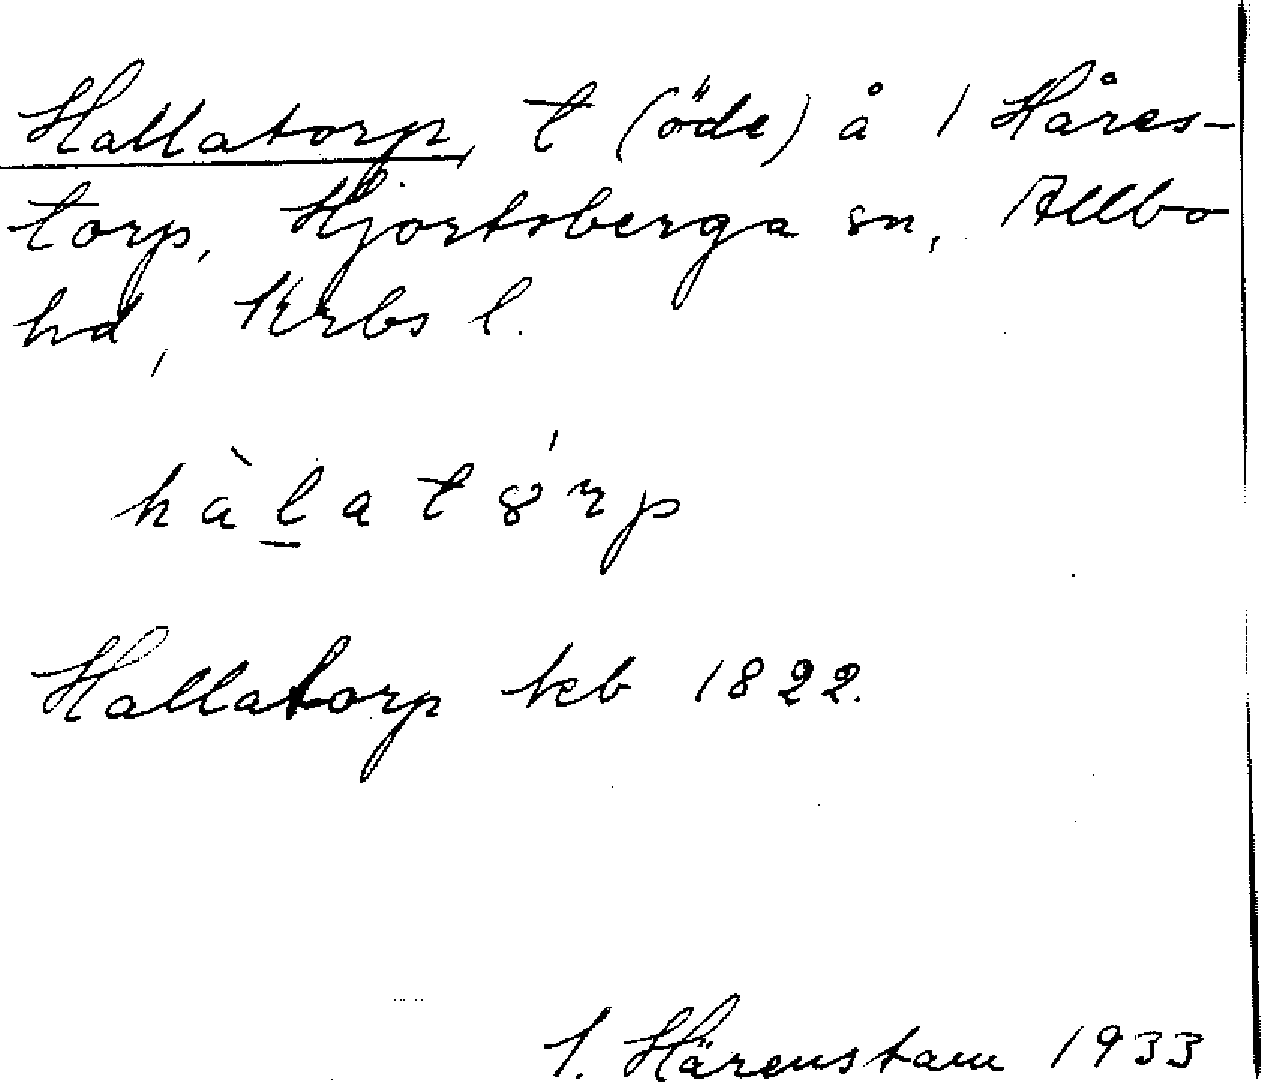 Hallatorp, t (öde) å 1 Håres-
torp, Hjortsberga sn, Allbo
hd, Krbs l.
hàl̲at8́rp
Hallatorp kb 1822.
Härenstam 1933